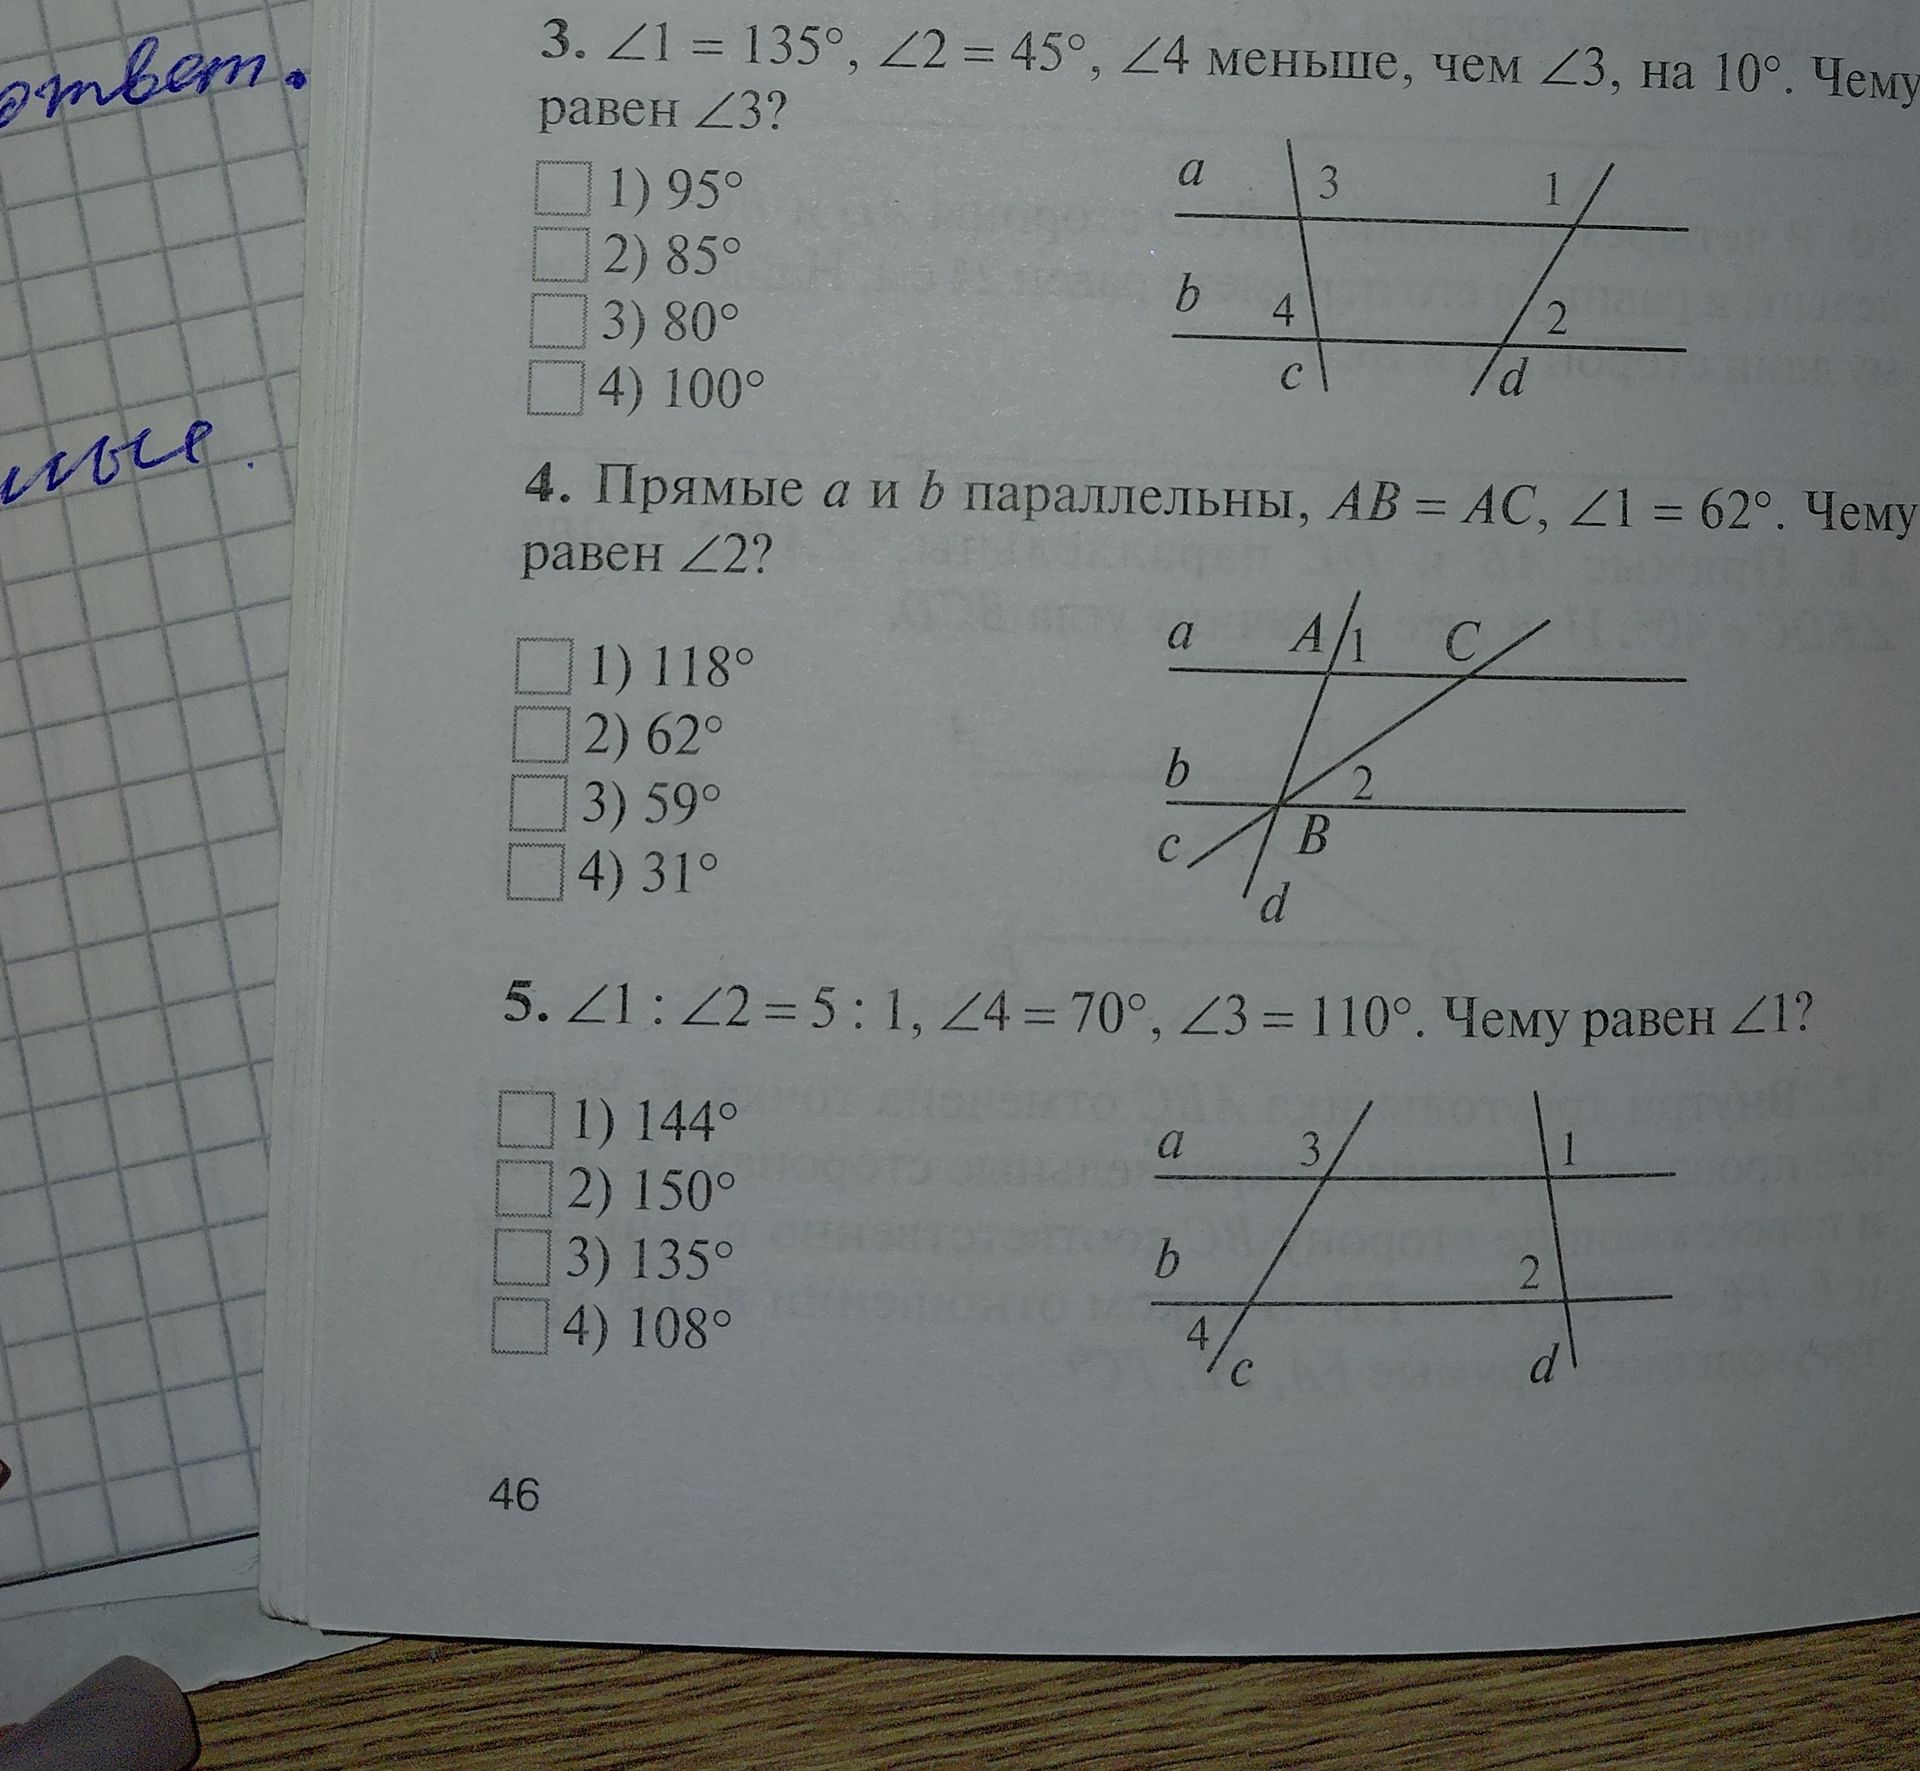 ответ.
3. ∠1 = 135°, ∠2 = 45°, ∠4 меньше, чем ∠3, на 10°. Чему
равен ∠3?
1) 95°
2) 85°
3) 80°
4) 100°
a 3 1
b 4 2
c d
4. Прямые a и b параллельны, AB = AC, ∠1 = 62°. Чему
равен ∠2?
1) 118°
2) 62°
3) 59°
4) 31°
a A 1 C
b 2
c B
d
5. ∠1 : ∠2 = 5 : 1, ∠4 = 70°, ∠3 = 110°. Чему равен ∠1?
1) 144°
2) 150°
3) 135°
4) 108°
a 3 1
b 2
4 c d
46